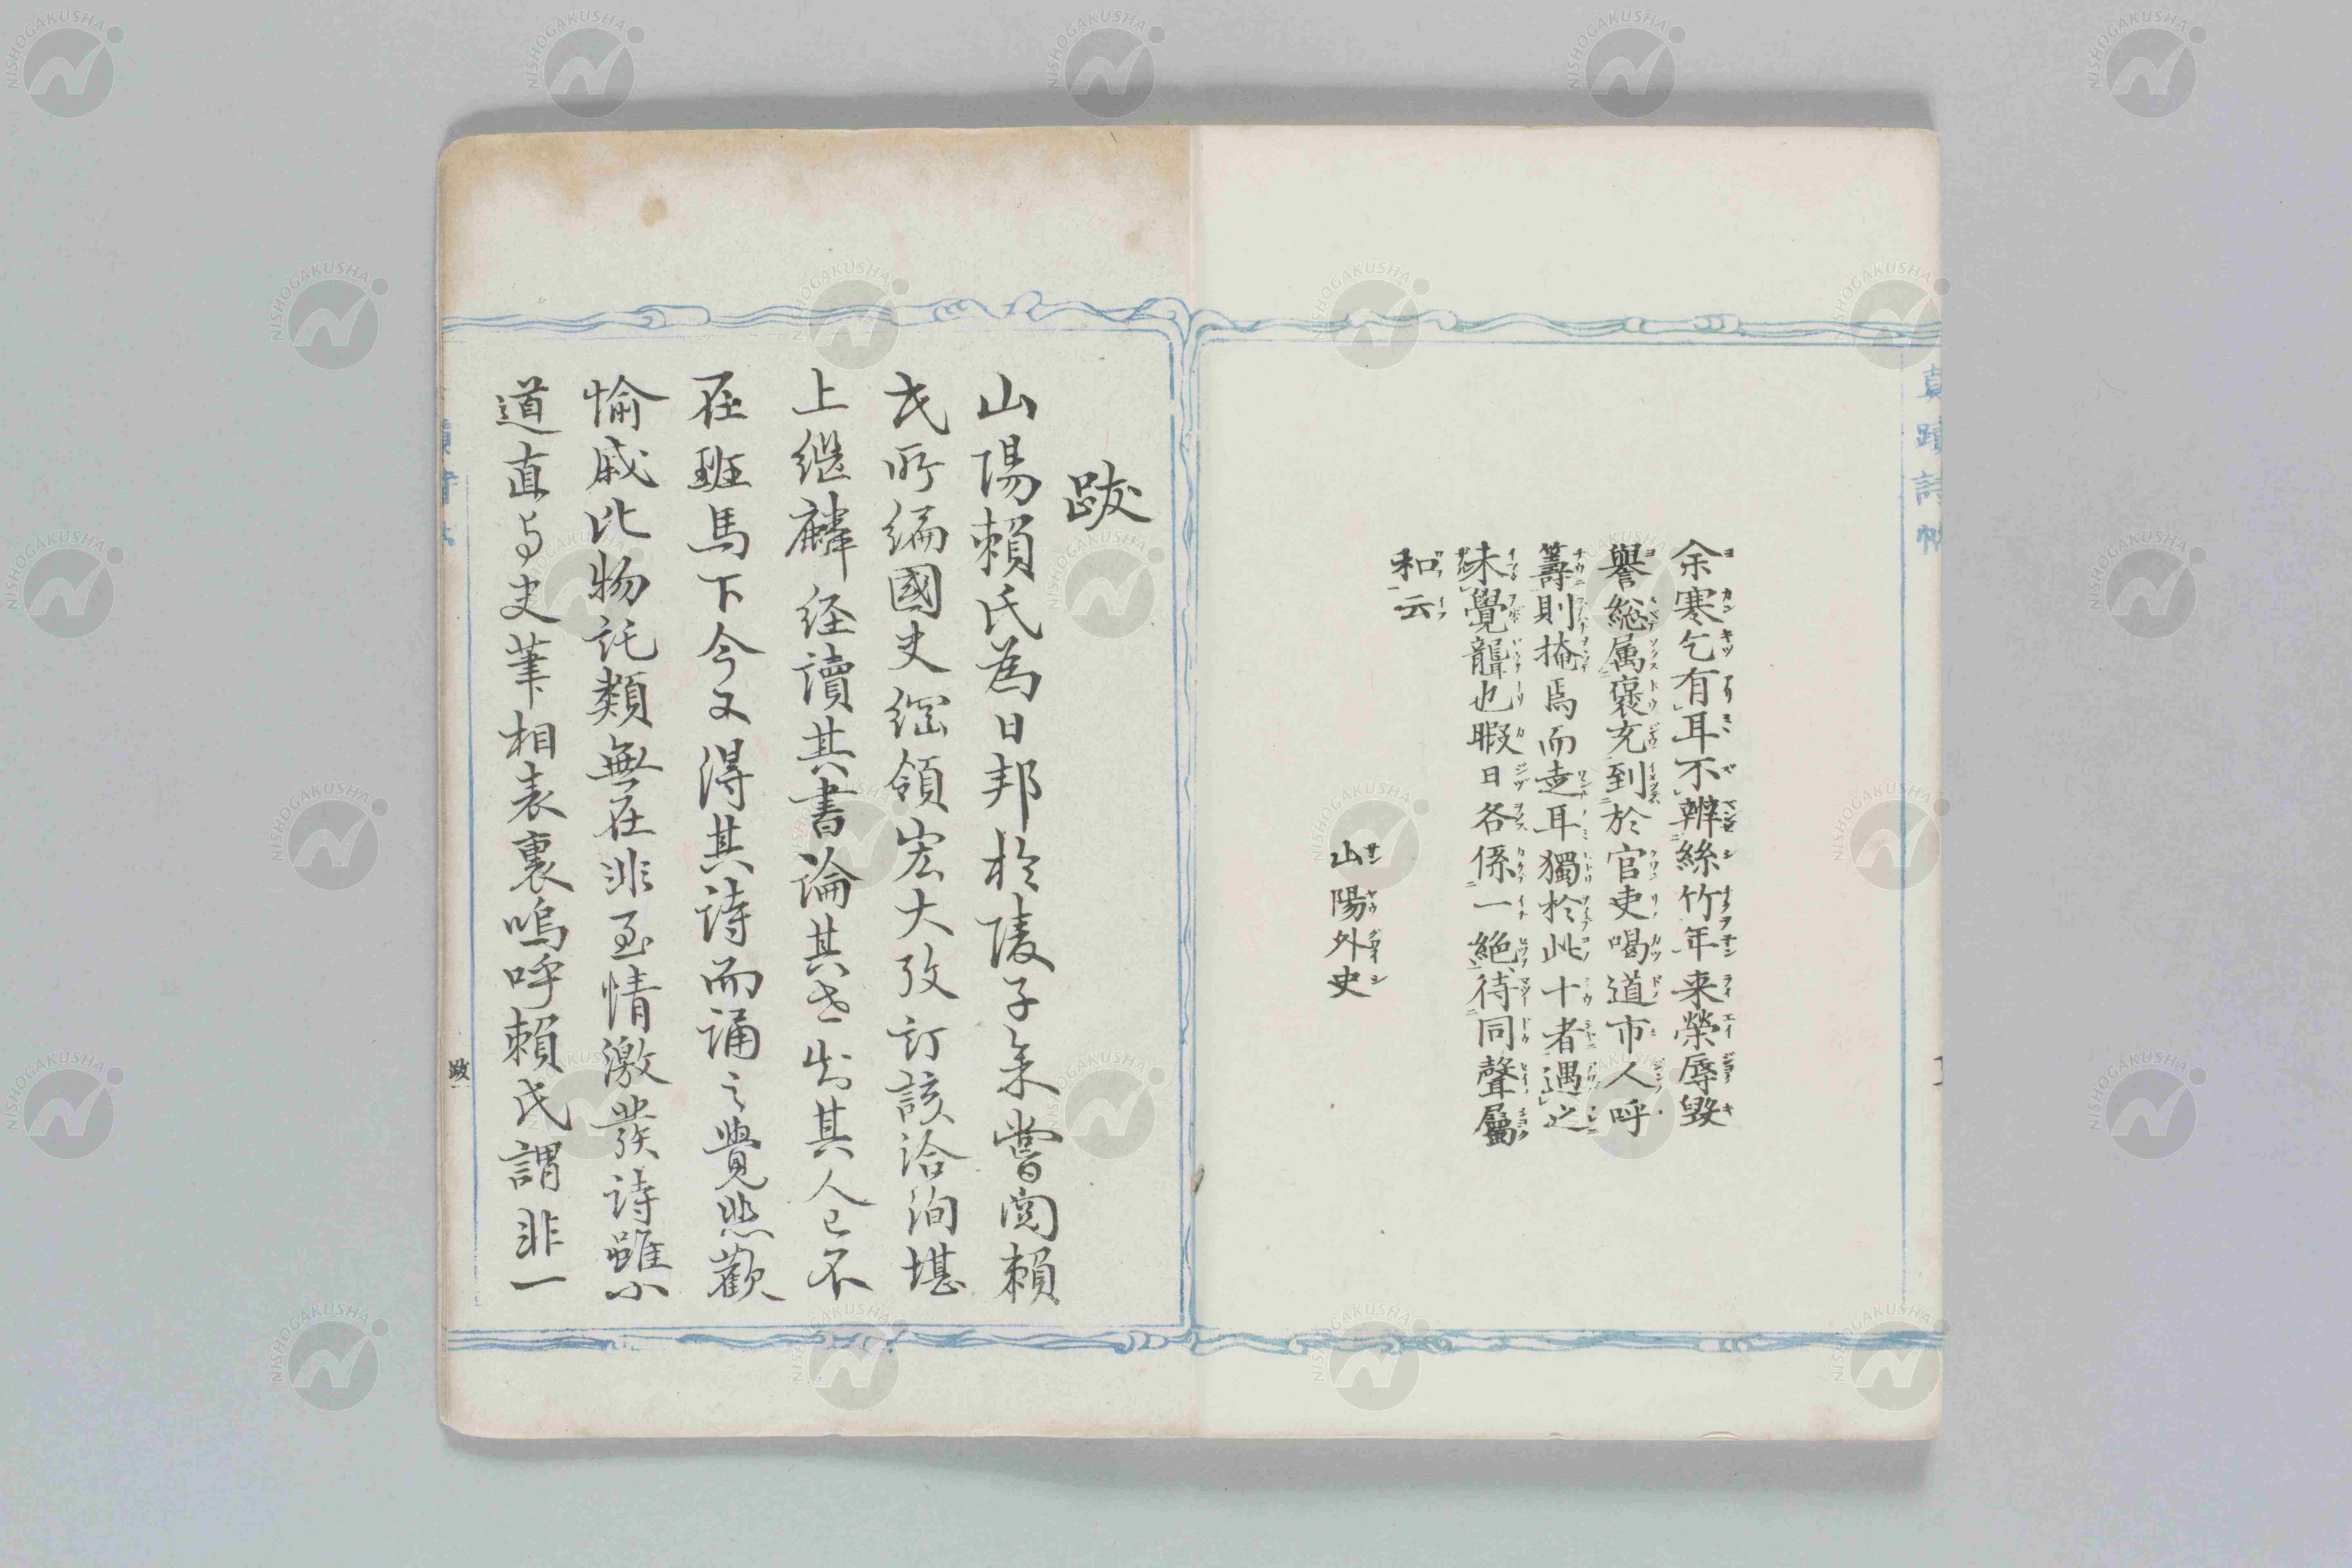 真蹟詩帖
余寒乞有耳不辨絲竹年来榮辱毀
譽総属褒充到於官吏喝道市人呼
籌則掩焉而走耳獨於此十者遇之
未覺聾也暇日各係一絶待同聲屬
和云
山陽外史
跋
山陽頼氏為日邦材陵子矣嘗閲頼
氏所編國史綱領宏大攷訂該洽洵堪
上継麟経讀其書論其世知其人已不
在班馬下今又得其詩而誦之覺悲歡
愉戚比物託類無在非至情激發詩雖小
道直与史筆相表裏嗚呼頼氏謂非一
跋
NISHOGAKUSHA